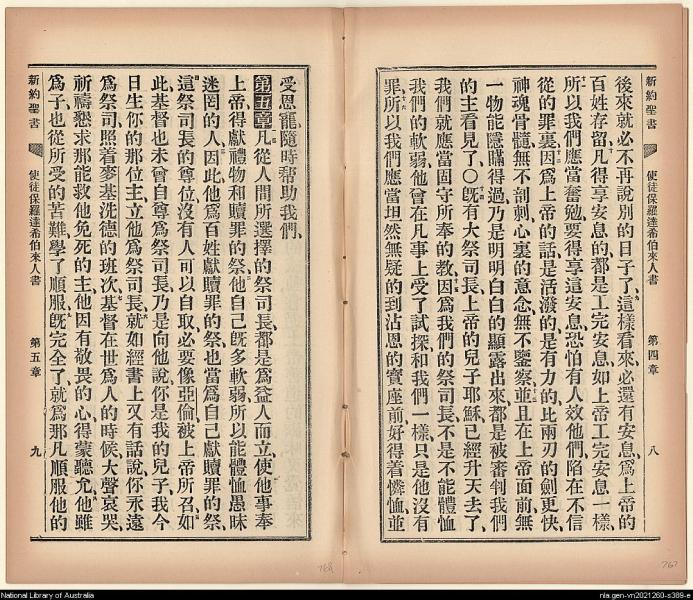 新約聖書 使徒保羅達希伯來人書 第四章 八
後來就必不再說別的日子了、這樣看來、必還有安息、爲上帝的
百姓存留、凡得享安息的、都是工完安息、如上帝工完安息一樣、
所以我們應當奮勉、要得享這安息、恐怕有人效他們陷在不信
從的罪裏、因爲上帝的話是活潑的、是有力的、比兩刃的劍更快、
神魂骨髓、無不剖刺、心裏的意念、無不鑒察、並且在上帝面前、無
一物能隱瞞得過、乃是明明白白的顯露出來、都是被審判我們
的主看見了〇旣有大祭司長、上帝的兒子耶穌、已經升天去了、
我們就應當固守所奉的教、因爲我們的祭司長、不是不能體恤
我們的軟弱、他曾在凡事上受了試探、和我們一樣、只是他沒有
罪、所以我們應當坦然無疑的到沾恩的寶座前、好得着憐恤、並
受恩寵、隨時帮助我們、
第五章 凡從人間所選擇的祭司長、都是爲益人而立、使他事奉
上帝、得獻禮物和贖罪的祭、他自己旣多軟弱、所以能體恤愚昧
迷罔的人、因此他爲百姓獻贖罪的祭、也當爲自己獻贖罪的祭、
這祭司長的尊位、沒有人可以自取、必要像亞倫被上帝所召、如
此基督也未曾自尊爲祭司長、乃是向他說、你是我的兒子、我今
日生你的那位主、立他爲祭司長、就如經書上又有話說、你永遠
爲祭司、照着麥基洗德的班次、基督在世爲人的時候、大聲哀哭、
祈禱懇求那能救他免死的主、他因有敬畏的心、得蒙聽允、他雖
爲子、也從所受的苦難、學了順服、旣完全了、就爲那凡順服他的
新約聖書 使徒保羅達希伯來人書 第五章 九
768
767
National Library of Australia
nla.gen-vn2021260-s389-e